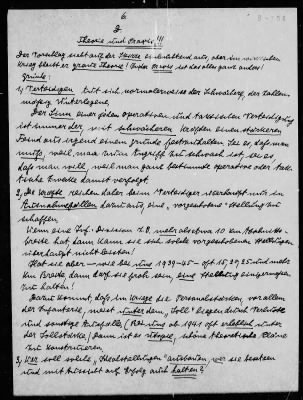 6
J
Theorie und Praxis!!!
Der Vorschlag sieht auf der Karte einleuchtend aus, aber im
Krieg bleibt er graue Theorie! In der Praxis ist das alles ganz anders!
Gründe:
1) Verteidigen tut sich normalerweise der Schwächere, der
Unterlegene,
Der Sinn einer jeden operativen und taktischen Verteidigung
ist immer der, mit schwächeren Kräften einen stärkeren
Feind aus irgend einem Grunde festzuhalten. Sei es, daß man
muß, weil man zum Angriff zu schwach ist, sei es,
daß man will, weil man ganz bestimmte operative oder takt-
tische Zwecke damit verfolgt.
2) Die Kräfte reichen daher beim Verteidiger überhaupt nur in
Ausnahmefällen dazu aus, eine "vorgeschobene" Stellung zu
schaffen.
Wenn eine Inf. Division z.B. mehr als etwa 10 km Abschnitts-
breite hat, dann kann sie sich solche vorgeschobenen Stellungen
überhaupt nicht leisten!
Hat sie aber – wie bei uns 1939-45 – oft 15, 20, 25 und mehr
km Breite, dann darf sie froh sein, eine Stellung einigermaßen
zu halten!
Dazu kommt, daß im Kriege die Personalstärken, vor allem
der Infanterie, meist unter dem "Soll" liegen durch Verluste
und sonstige Ausfälle, (Bei uns ab 1941 oft erheblich unter
der Sollstärke) Dann ist es utopie, schöne theoretische Pläne
zu konstruieren.
3) Wer soll solche "Idealstellungen" ausbauen, wer sie besetzen
und mit Aussicht auf Erfolg auch halten?